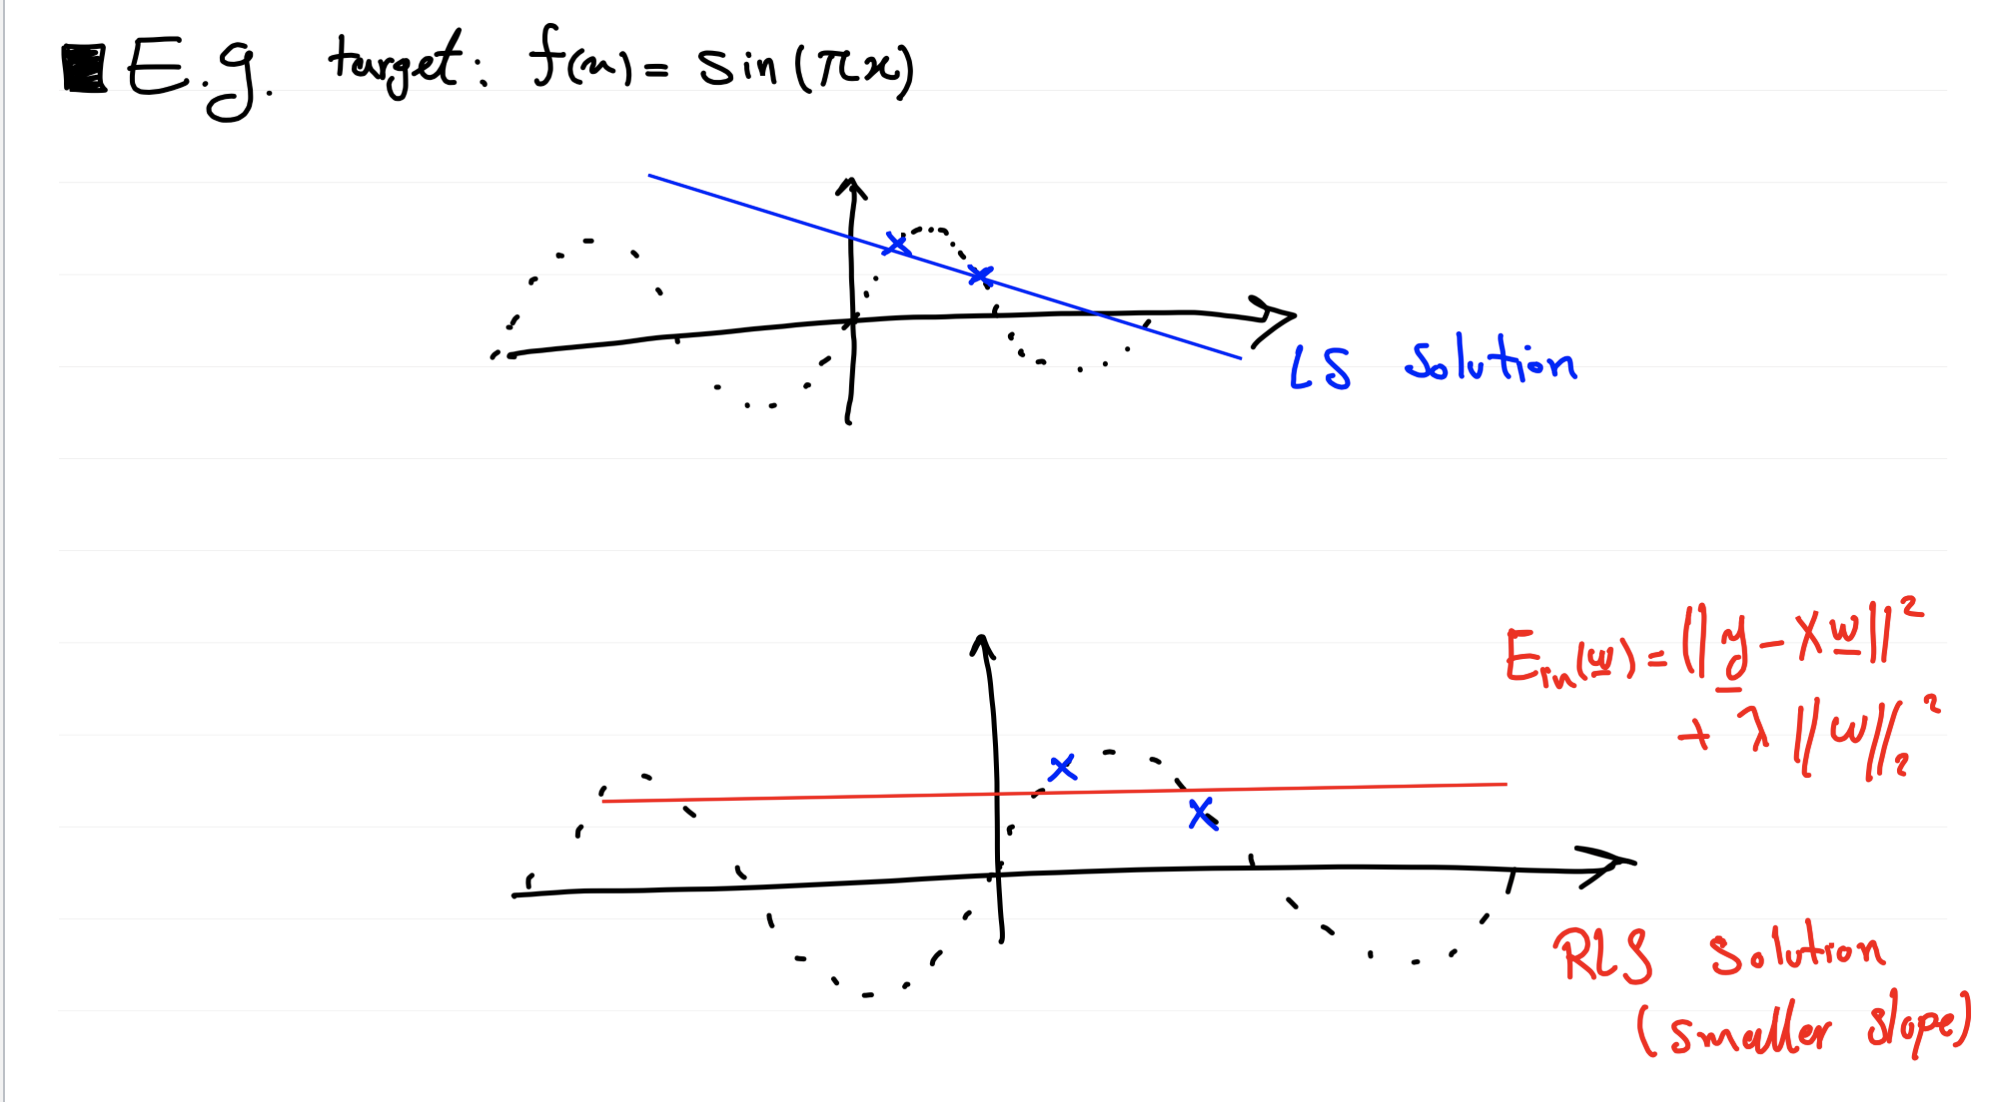 E.g. target: f(x) = sin(πx)
LS solution
E_in(w) = ||y - Xw||²
+ λ||w||₂²
RLS solution
(smaller slope)